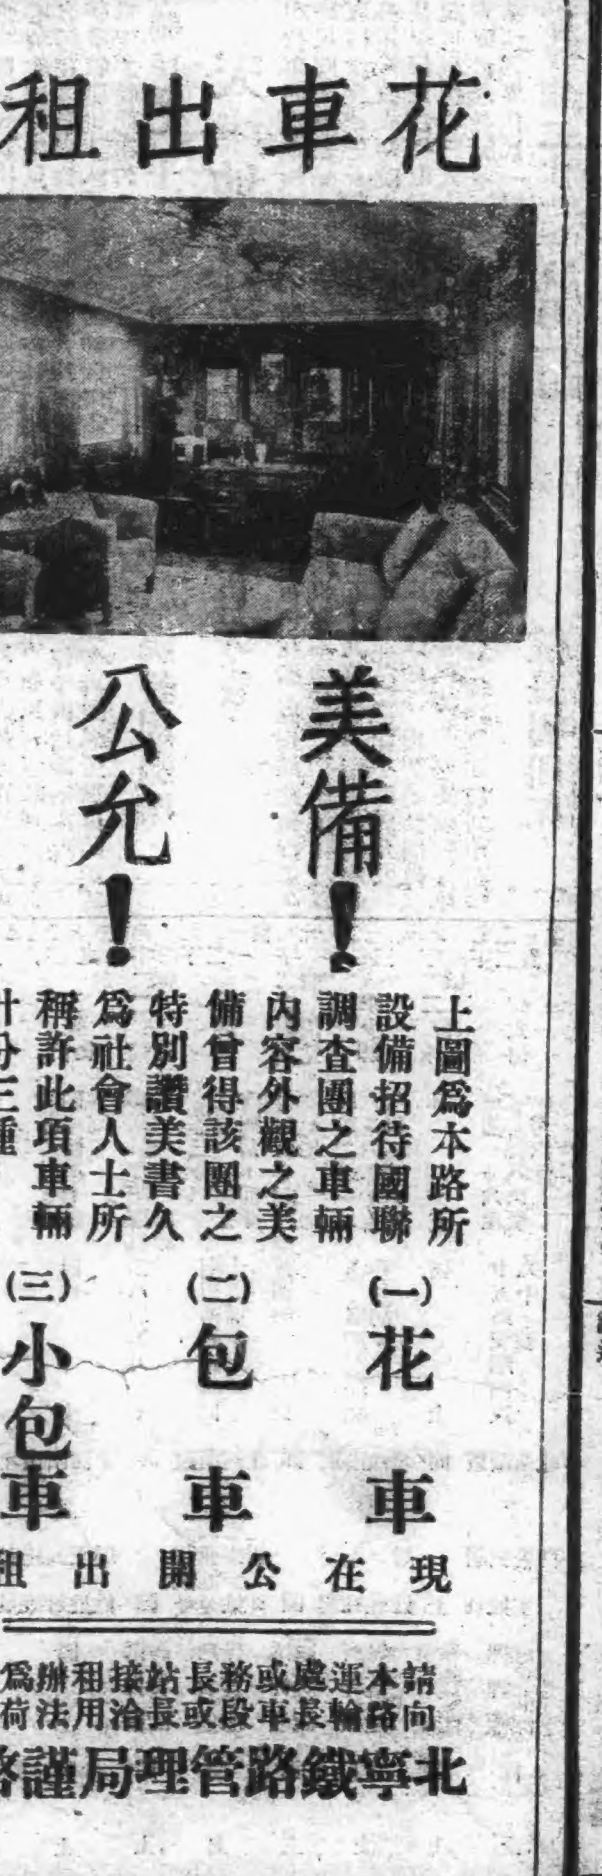 花車出租
美備！
公允！
上圖爲本路所
設備招待國聯
調查團之車輛
內容外觀之美
備曾得該團之
特別讚美書久
爲社會人士所
稱許此項車輛
計分三種
(一)花車
(二)包車
(三)小包車
現在公開出租
請向本路運輸處長或車務段長或站長接洽租用辦法爲荷
北寧鐵路管理局謹啓